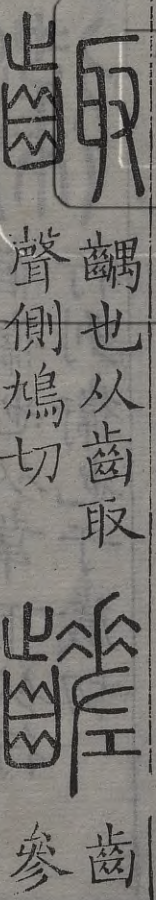 齱
齵也从齒取
聲側鳩切
齹
齒
參